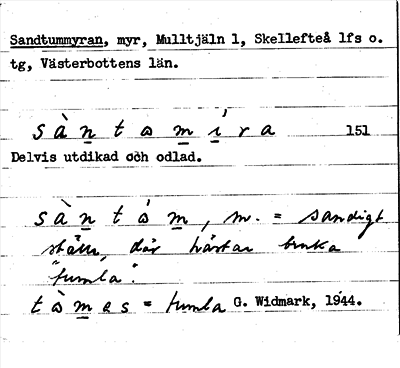 Sandtummyran, myr, Mulltjäln 1, Skellefteå lfs o.
tg, Västerbottens län.
sàntɷmı̣́ra 151
Delvis utdikad och odlad.
sàntɷ́m, m. = sandigt
ställe, där hästar bruka
"tumla".
tɷ̀mas = tumla G. Widmark, 1944.